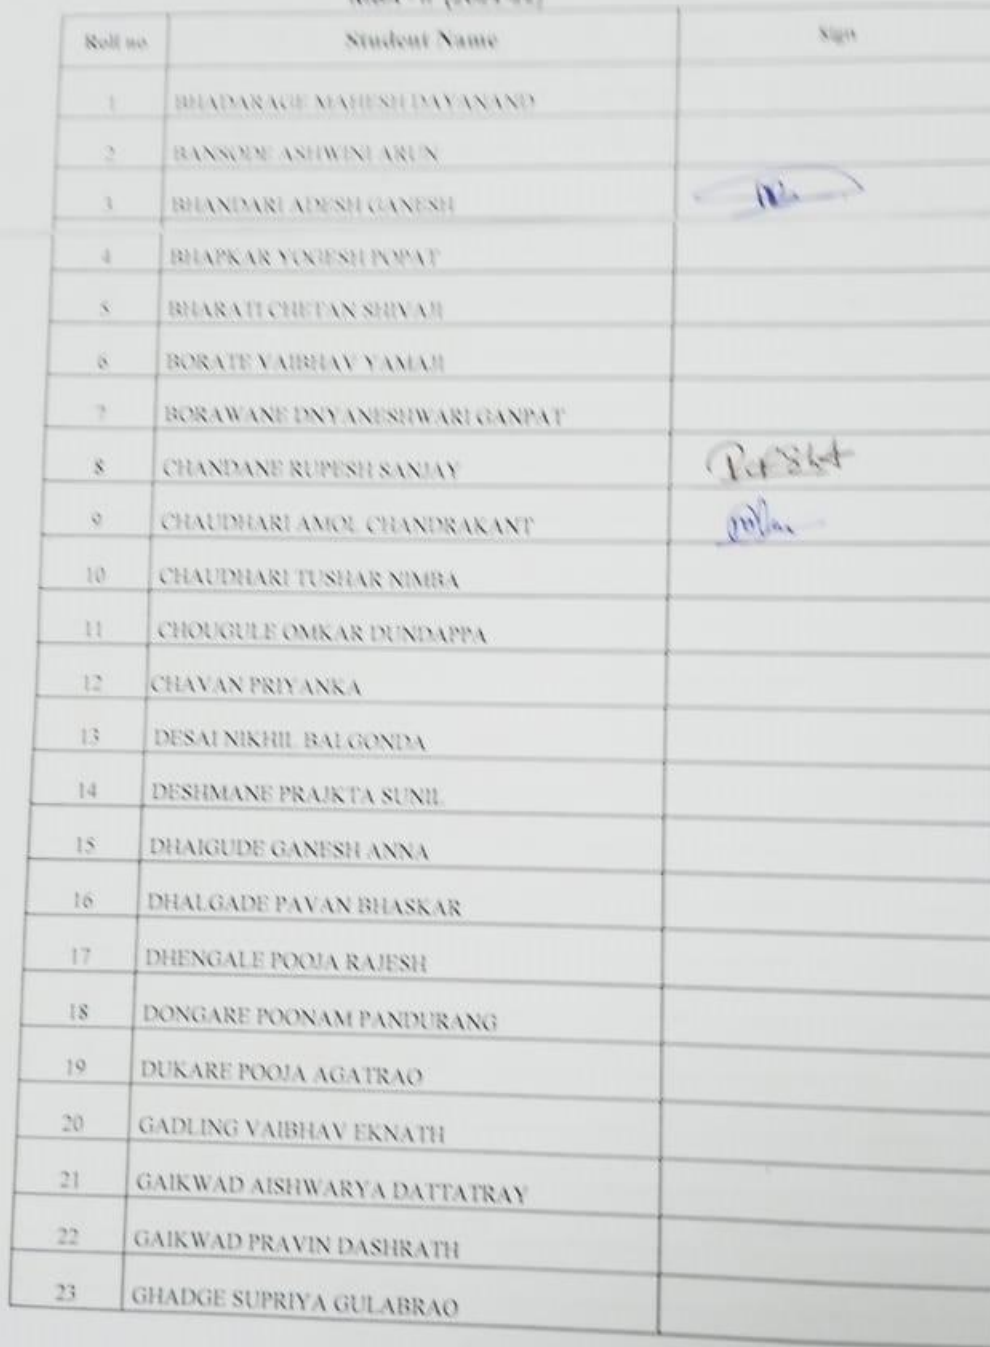 Roll no Student Name Sign
1 BHADARAGE MAHESH DAYANAND
2 BANSODE ASHWINI ARUN
3 BHANDARI ADESH GANESH
4 BHAPKAR YOGESH POPAT
5 BHARATI CHETAN SHIVAJI
6 BORATE VAIBHAV YAMAJI
7 BORAWANE DNYANESHWARI GANPAT
8 CHANDANE RUPESH SANJAY
9 CHAUDHARI AMOL CHANDRAKANT
10 CHAUDHARI TUSHAR NIMBA
11 CHOUGULE OMKAR DUNDAPPA
12 CHAVAN PRIYANKA
13 DESAI NIKHIL BALGONDA
14 DESHMANE PRAJKTA SUNIL
15 DHAIGUDE GANESH ANNA
16 DHALGADE PAVAN BHASKAR
17 DHENGALE POOJA RAJESH
18 DONGARE POONAM PANDURANG
19 DUKARE POOJA AGATRAO
20 GADLING VAIBHAV EKNATH
21 GAIKWAD AISHWARYA DATTATRAY
22 GAIKWAD PRAVIN DASHRATH
23 GHADGE SUPRIYA GULABRAO